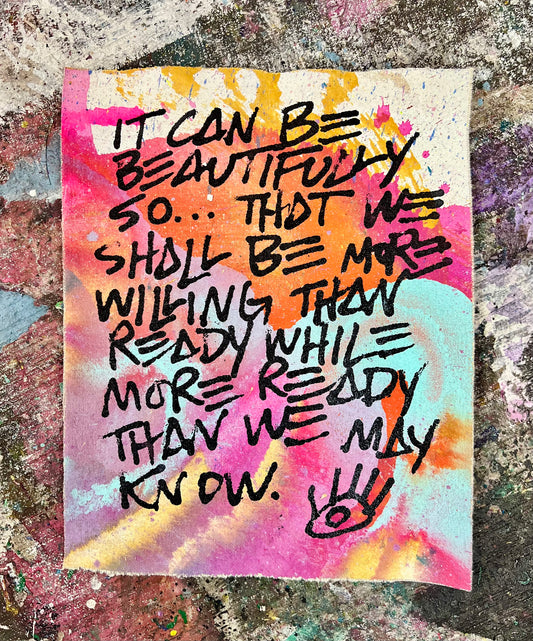 IT CAN BE
BEAUTIFULLY
SO... THAT WE
SHALL BE MORE
WILLING THAN
READY WHILE
MORE READY
THAN WE MAY
KNOW.